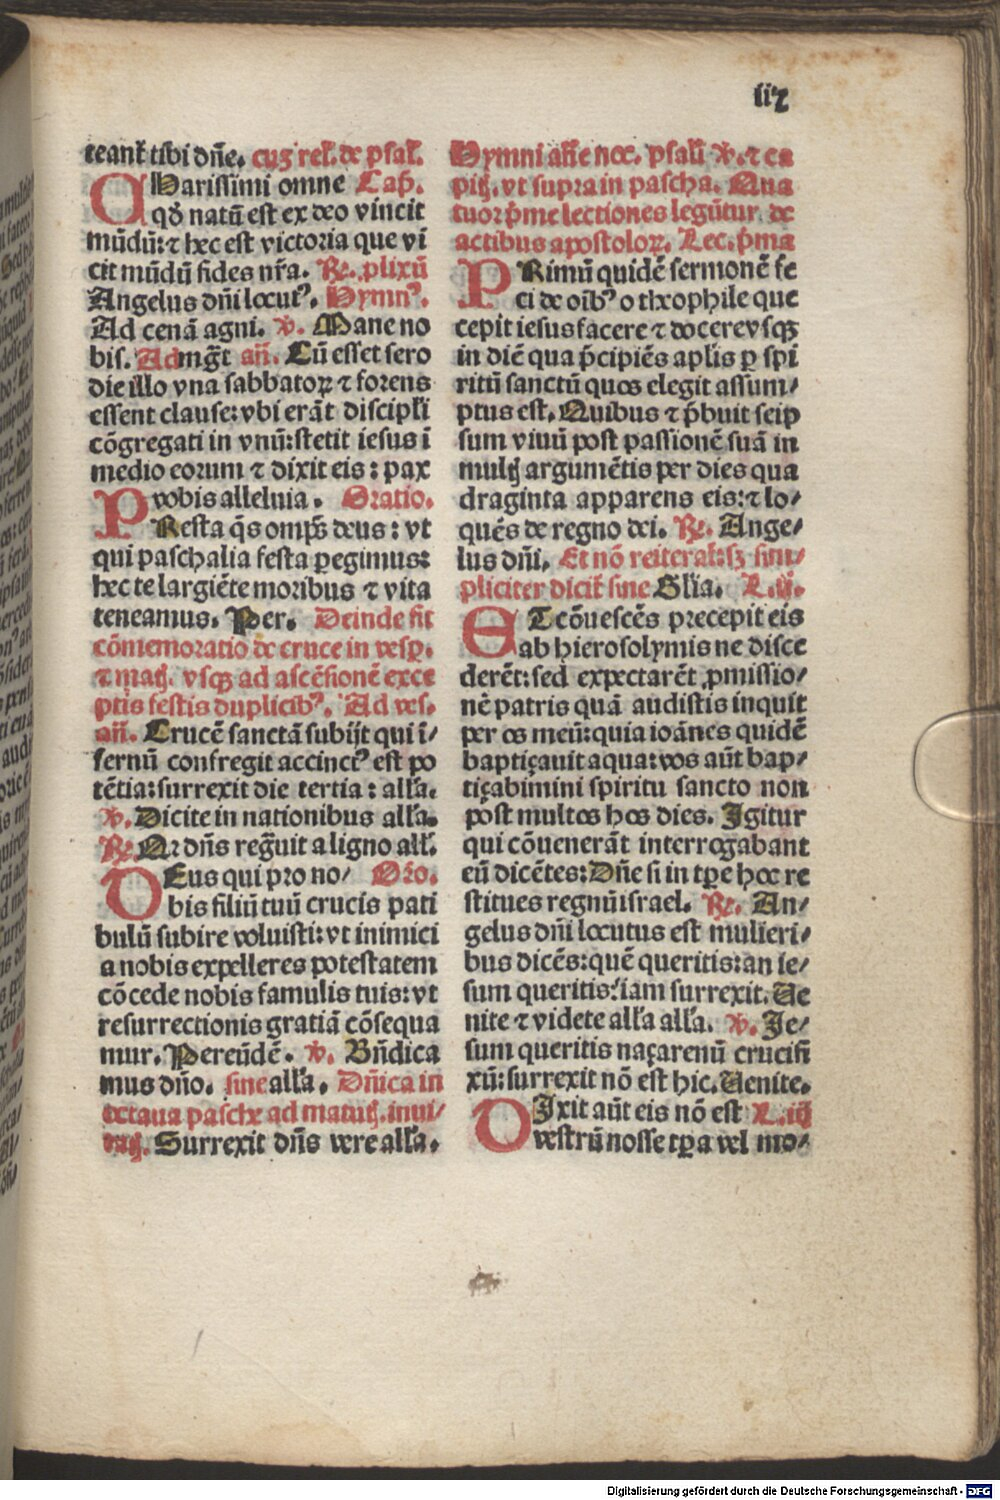 teant᷑ tibi dn̄e. cuꝫ rel. de psal.
CHarissimi omne Cap̄.
qđ natū est ex deo vincit
mūdū: ⁊ hec est victoria que vī
cit mūdū fides nr̄a. ℟. plixū
Angelus dn̄i locutꝰ. Hymnꝰ.
Ad cenā agni. ℣. Mane no
bis. Ad mg̅t an̄. Cū esset sero
die illo vna sabbatoꝝ ⁊ forens
essent clause: vbi erāt discipl̄i
cōgregati in vnū: stetit iesus ī
medio eorum ⁊ dixit eis: pax
vobis alleluia. Oratio.
PResta q̄s omp̄s deus: vt
qui paschalia festa peregimus:
hec te largiēte moribus ⁊ vita
teneamus. Per. Deinde fit
cōmemoratio de cruce in vesꝑ.
⁊ matꝭ. vsqꝫ ad ascēsionē exce
ptis festis duplicibꝰ. Ad ves.
an̄. Crucē sanctā subijt qui ī/
fernū confregit accinctꝰ est po
tētia: surrexit die tertia: all'a.
℣. Dicite in nationibus all'a.
℟. Qr dn̄s regͣuit a ligno all'.
DEus qui pro no/ Oro.
bis filiū tuū crucis pati
bulū subire voluisti: vt inimici
a nobis expelleres potestatem
cōcede nobis famulis tuis: vt
resurrectionis gratiā cōsequa
mur. Per eūdē. ℣. Bn̄dica
mus dn̄o. sine all'a. Dn̄ica in
octaua pasche ad matutꝭ. inui/
tatꝭ. Surrexit dn̄s vere all'a.
liz
Hymni an̄e noc. psal'i ℣. ⁊ ca
pitꝭ. vt supra in pascha. Qua
tuor p̄me lectiones legūtur de
actibus apostoloꝝ. Lec. p̄ma
PRimū quidē sermonē fe
ci de oībꝰ o theophile que
cepit iesus facere ⁊ docere vsqꝫ
in diē qua p̄cipiēs apl̄is ꝑ spi
ritū sanctū quos elegit assum/
ptus est. Quibus ⁊ p̄buit seip
sum viuū post passionē suā in
multꝭ argumētis per dies qua
draginta apparens eis: ⁊ lo/
quēs de regno dei. ℟. Ange/
lus dn̄i. Et nō reiterat᷑: sꝫ sim/
pliciter dicit᷑ sine Gl'ia. L. ij.
ET cōuescēs precepit eis
ab hierosolymis ne disce
derēt: sed expectarēt ꝓmissio/
nē patris quā audistis inquit
per os meū: quia ioānes quidē
baptiçauit aqua: vos aūt bap/
tiçabimini spiritu sancto non
post multos hos dies. Igitur
qui cōuenerāt interrogabant
eū dicētes: Dn̄e si in tꝑe hoc re
stitues regnū israel. ℟. An/
gelus dn̄i locutus est mulieri/
bus dicēs: quē queritis: an ie/
sum queritis? iam surrexit. Ue
nite ⁊ videte all'a all'a. ℣. Ie/
sum queritis naçarenū crucifi
xū: surrexit nō est hic. Uenite.
DIxit aūt eis nō est L. iij
vestrū nosse tꝑa vel mo/
Digitalisierung gefördert durch die Deutsche Forschungsgemeinschaft - DFG